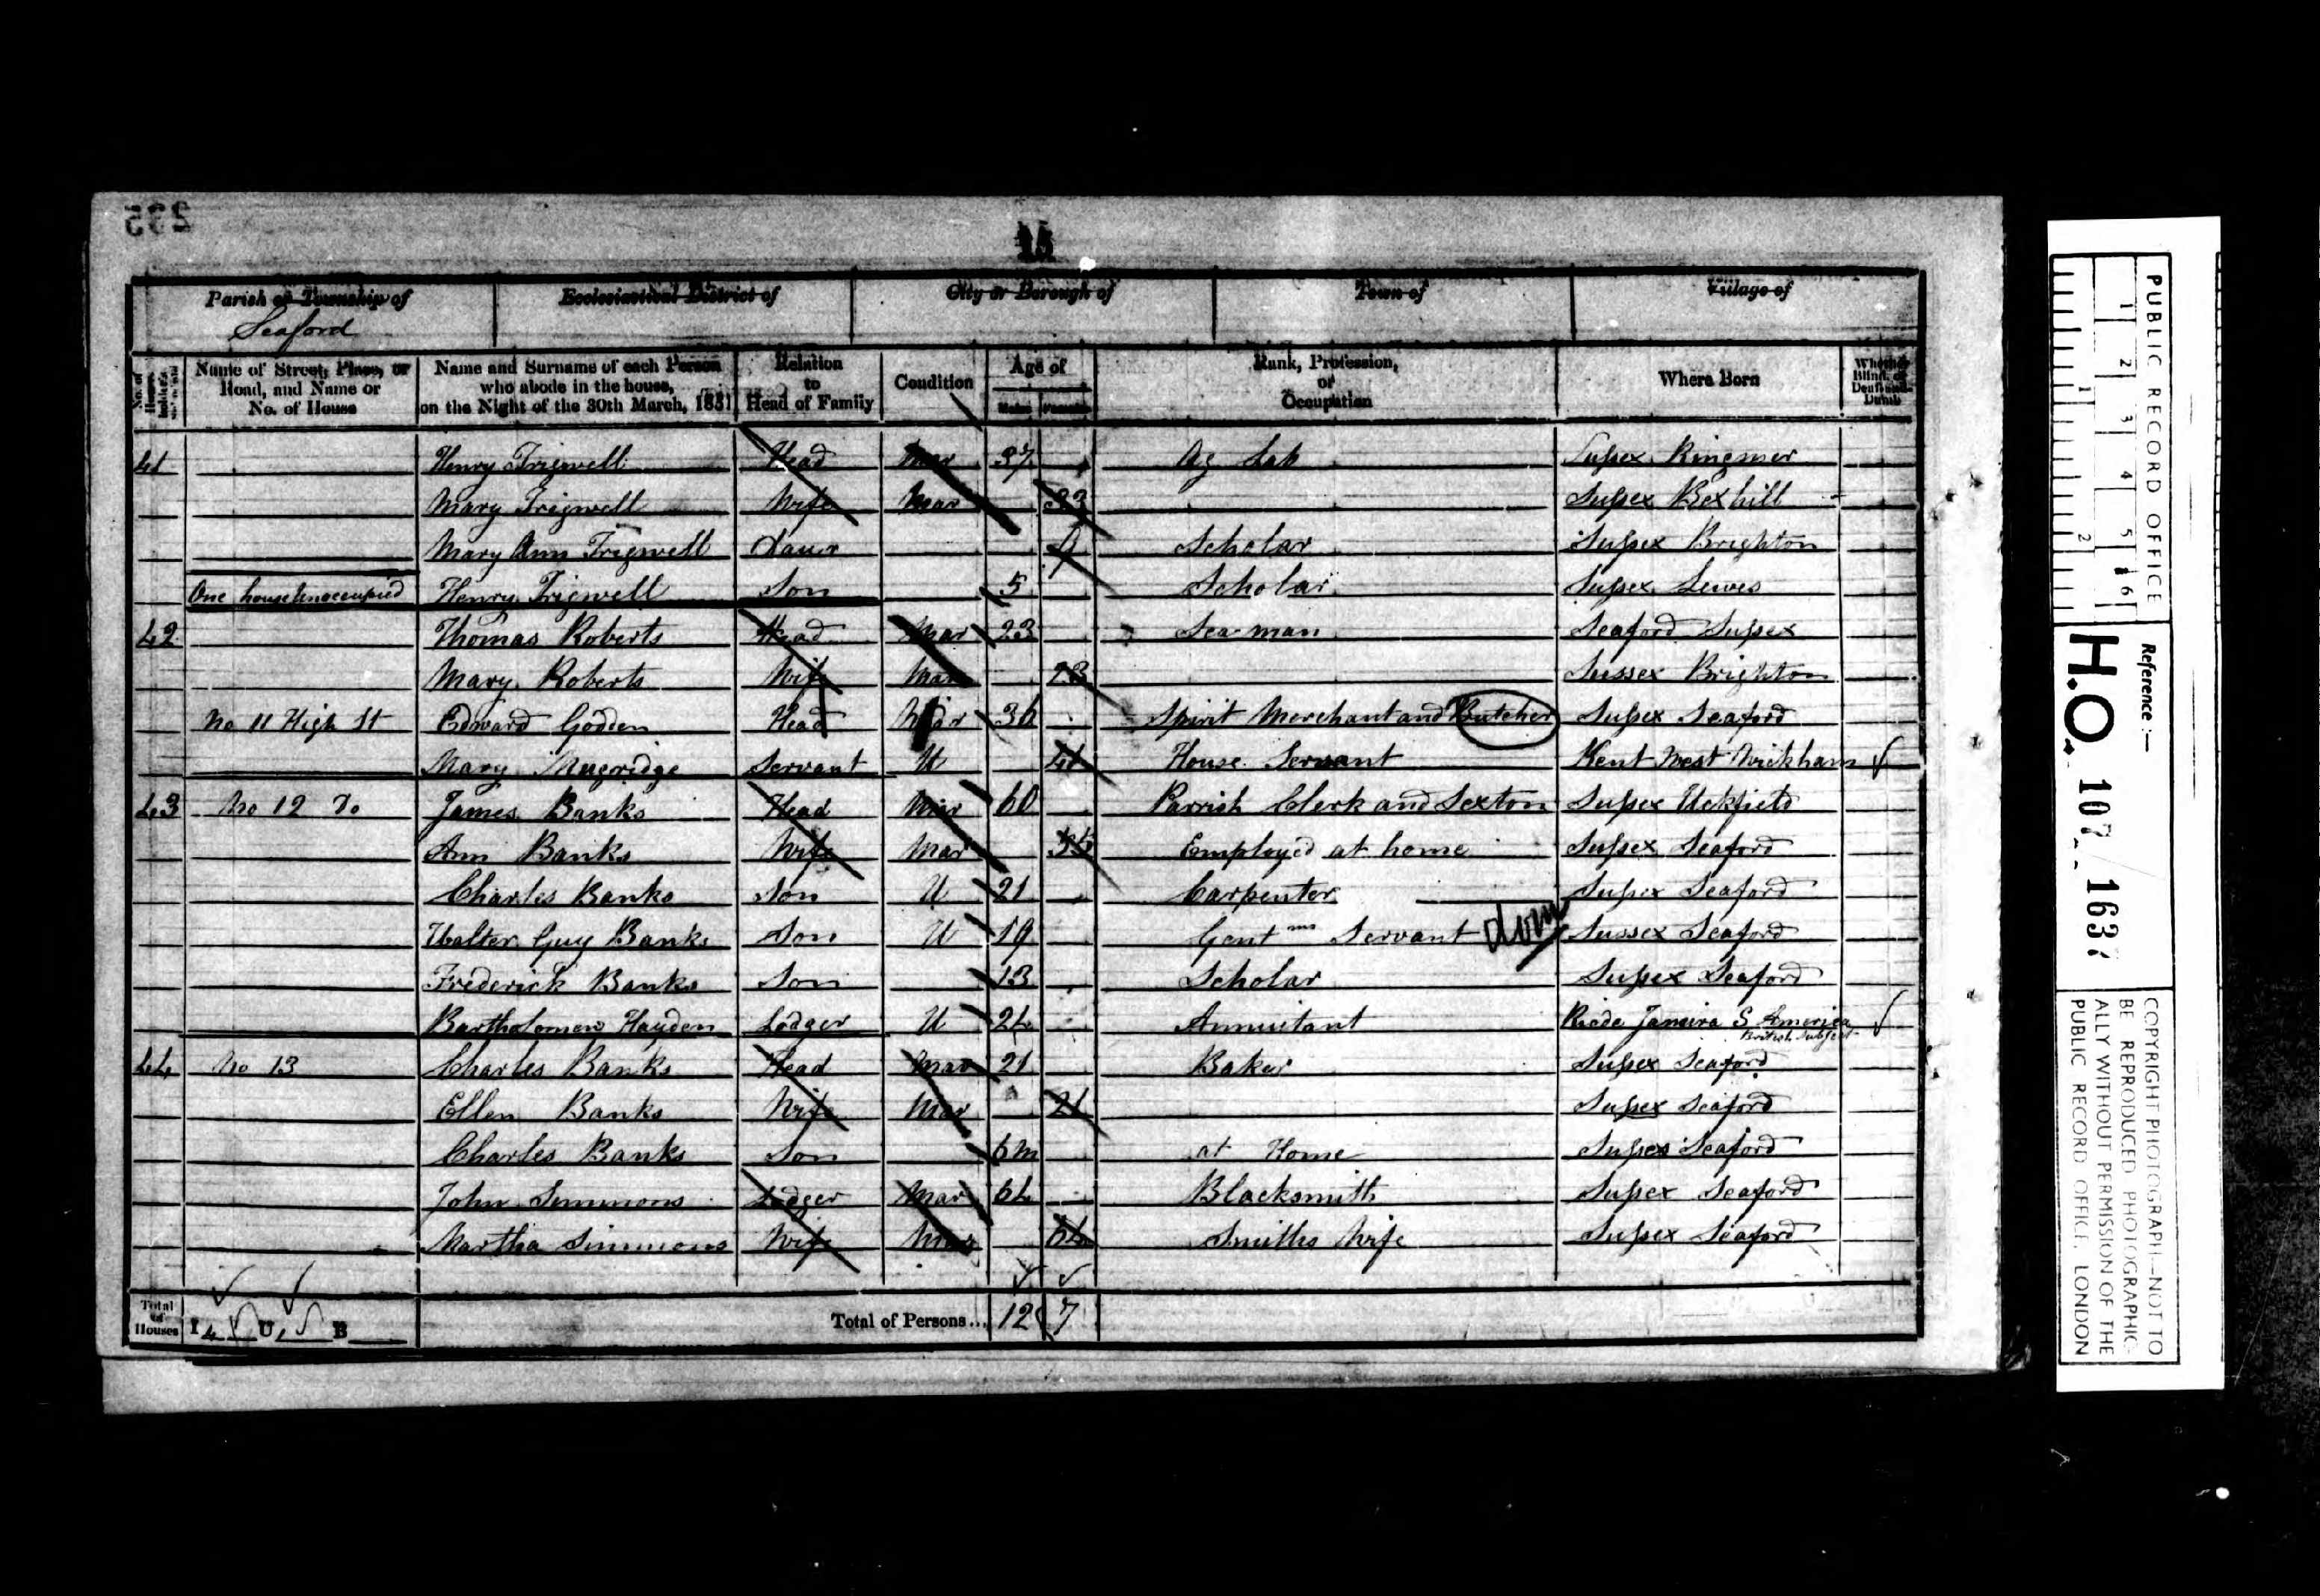 235
15
Parish or Township of
Ecclesiastical District of
City or Borough of
Town of
Village of
Seaford
No. of
Name of Street, Place, or Road, and Name or No. of House
Name and Surname of each Person who abode in the house, on the Night of the 30th March, 1851
Relation to Head of Family
Condition
Age of
Males Females
Rank, Profession, or Occupation
Where Born
Whether Blind, or Deaf-and-Dumb
41 Henry Trigwell Head Mar 37 Ag Lab Sussex Ringmer
Mary Trigwell Wife Mar 33 Sussex Bexhill
Mary Ann Trigwell Daur 9 Scholar Sussex Brighton
One house Unoccupied Henry Trigwell Son 5 Scholar Sussex Lewes
42 Thomas Roberts Head Mar 23 Sea-man Seaford Sussex
Mary Roberts Wife Mar 23 Sussex Brighton
No 11 High St Edward Godden Head 36 Spirit Merchant and Butcher Sussex Seaford
Mary Mugridge Servant U 41 House Servant Kent West Wickham
43 No 12 Do James Banks Head Mar 60 Parrish Clerk and Sexton Sussex Uckfield
Ann Banks Wife Mar Employed at home Sussex Seaford
Charles Banks Son U 21 Carpenter Sussex Seaford
Walter Guy Banks Son U 19 Gentmns Servant dom Sussex Seaford
Frederick Banks Son 13 Scholar Sussex Seaford
Bartholomew Hayden Lodger U 24 Annuitant Riode Janeira S America
British Subject
44 No 13 Charles Banks Head Mar 21 Baker Sussex Seaford
Ellen Banks Wife Mar 21 Sussex Seaford
Charles Banks Son 6m at Home Sussex Seaford
John Simmons Lodger Mar 64 Blacksmith Sussex Seaford
Martha Simmons Wife Mar 64 Smiths Wife Sussex Seaford
Total of Houses I 4 U 1 B
Total of Persons... 12 7
PUBLIC RECORD OFFICE
1 2 3 4 5 6
1 2
Reference :—
H.O. 107/1637
COPYRIGHT PHOTOGRAPH—NOT TO
BE REPRODUCED PHOTOGRAPHIC-
ALLY WITHOUT PERMISSION OF THE
PUBLIC RECORD OFFICE, LONDON